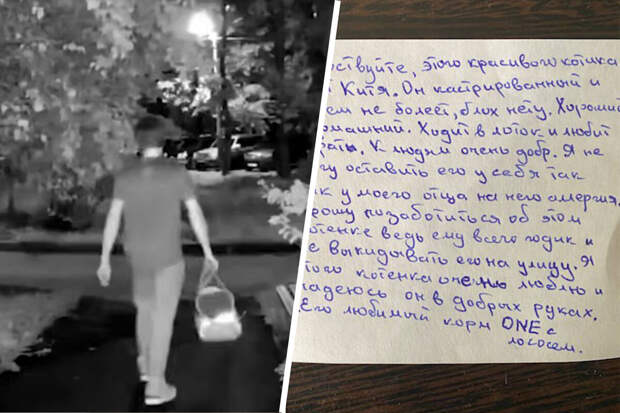 ствуйте, этого красивого котика
т Китя. Он кастрированный и
ем не болеет, блох нету. Хороший
омашний. Ходит в лоток и любит
рать. К людям очень добр. Я не
гу оставить его у себя так
к у моего отца на него алергия.
рошу позаботиться об этом
отенке ведь ему всего годик и
е выкидывать его на улицу. Я
того котенка очень люблю и
адеюсь он в добрых руках.
Его любимый корм ONE с
лососем.